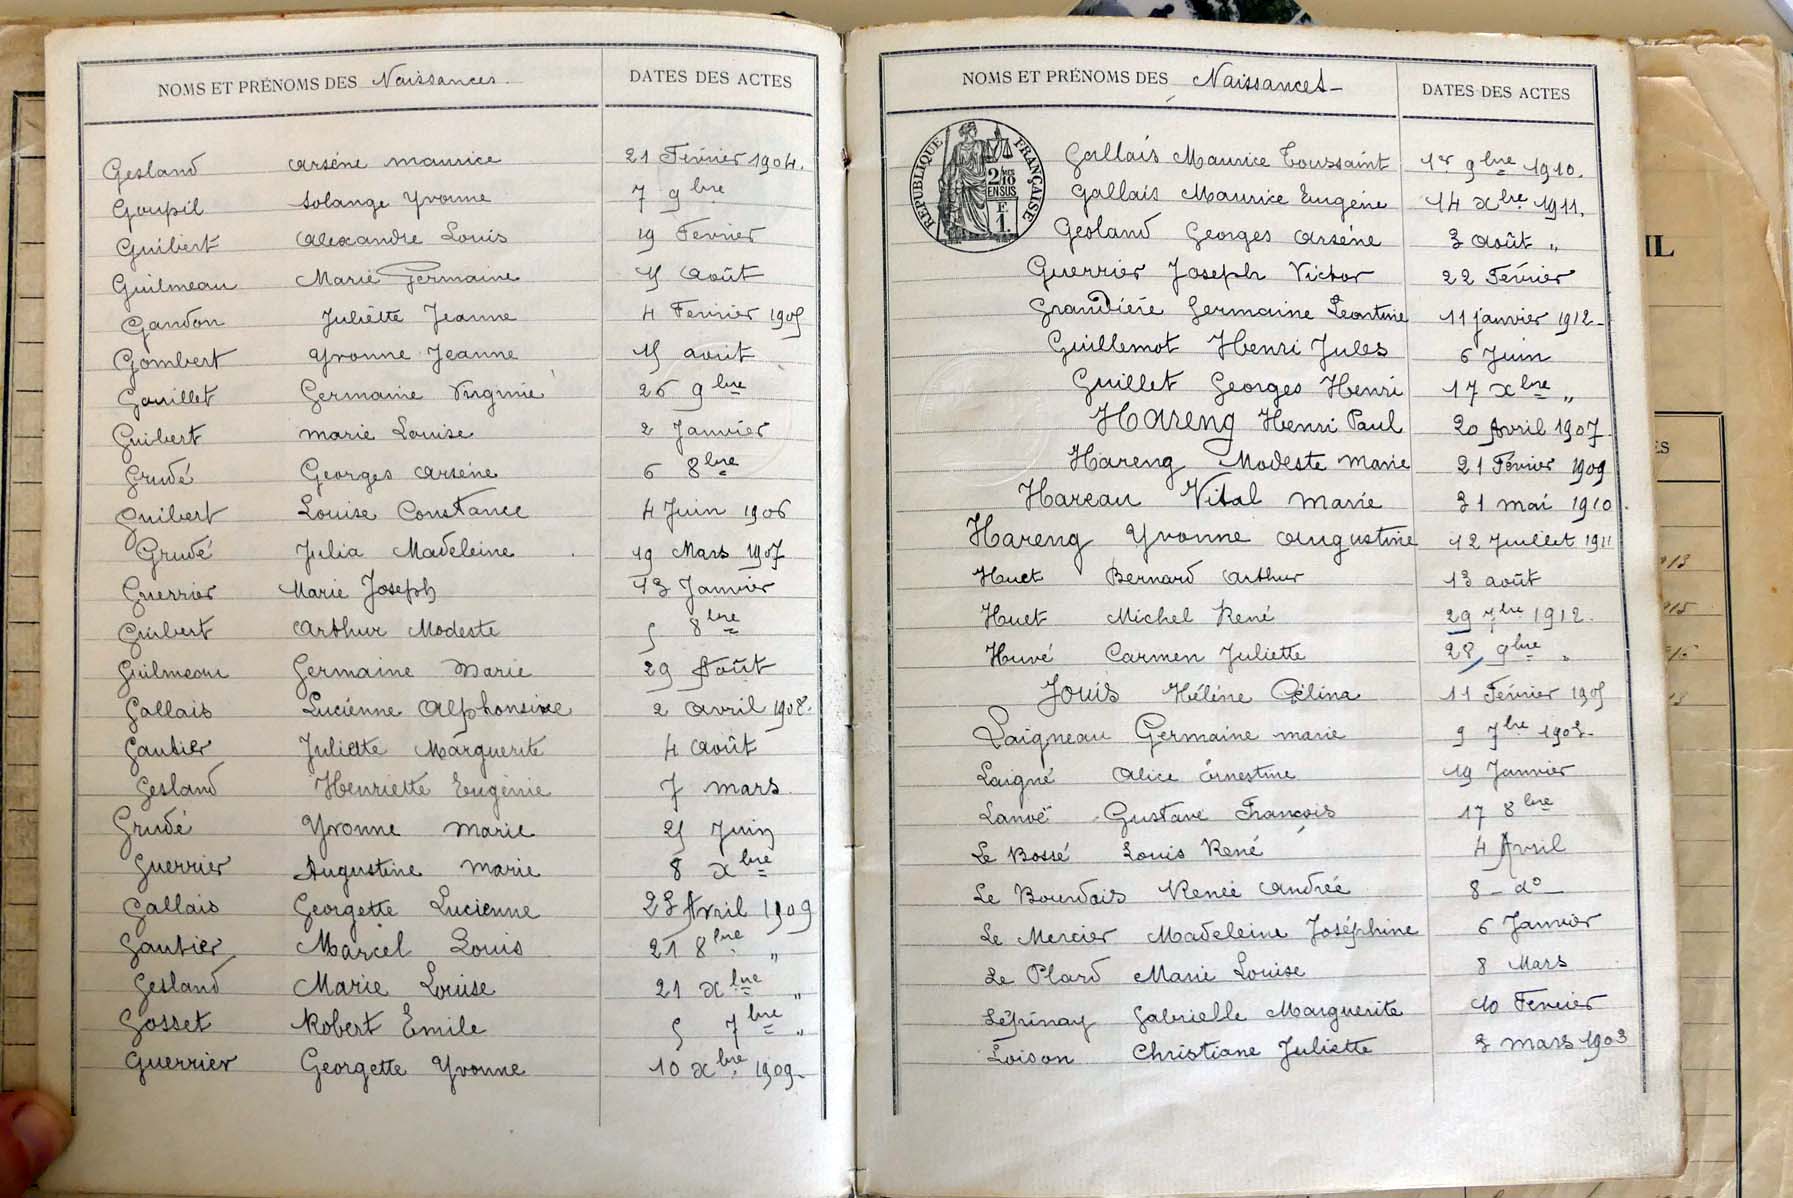 NOMS ET PRÉNOMS DES Naissances. DATES DES ACTES
Gesland Arsène Maurice 21 Février 1904.
Goupil Solange Yvonne 7 9bre
Guibert Alexandre Louis 19 Février
Guilmeau Marie Germaine 15 Août
Gandon Juliette Jeanne 4 Fevrier 1905
Gombert Yvonne Jeanne 15 avrit
Gouillet Germaine Virginie 26 9bre
Guibert Marie Louise 2 Janvier
Grudé Georges Arsène 6 8bre
Guibert Louise Constance 4 Juin 1906
Grudé Julia Madeleine 19 Mars 1907
Guerrier Marie Joseph 13 Janvier
Guibert Arthur Modeste 5 8bre
Guilmeau Germaine Marie 29 Août
Gallais Lucienne Alphonsine 2 Avril 1908.
Gautier Juliette Marguerite 4 Août
Gesland Henriette Eugénie 7 mars
Grudé Yvonne Marie 25 Juin
Guerrier Augustine Marie 8 xbre
Gallais Georgette Lucienne 23 Avril 1909
Gautier Marcel Louis 21 8bre "
Gesland Marie Louise 21 xbre "
Gosset Robert Emile 5 7bre "
Guerrier Georgette Yvonne 10 xbre 1909.
NOMS ET PRÉNOMS DES Naissances DATES DES ACTES
RÉPUBLIQUE FRANÇAISE
2/10 EN SUS
F. 1.
Gallais Maurice Toussaint 1er 9bre 1910.
Gallais Maurice Eugène 14 xbre 1911.
Gesland Georges Arsène 3 Août "
Guerrier Joseph Victor 22 Février
Grandière Germaine Léontine 11 janvier 1912
Guillemot Henri Jules 6 Juin
Guillet Georges Henri 17 xbre "
Hareng Henri Paul 20 Avril 1907
Hareng Modeste Marie 21 Février 1909
Hareau Vital Marie 31 mai 1910
Hareng Yvonne Augustine 12 Juillet 1911
Huet Bernard Arthur 13 août
Huet Michel René 29 7bre 1912.
Huvé Carmen Juliette 28 9bre "
Jouis Hélène Célina 11 Février 1905
Laigneau Germaine Marie 9 7bre 1903
Laigné Alice Ernestine 19 Janvier
Lanoë Gustave François 17 8bre
Le Bossé Louis René 4 Avril
Le Bourdais Renée Andrée 8 - do -
Le Mercier Madeleine Joséphine 6 Janvier
Le Plard Marie Louise 8 Mars
Lépinay Gabrielle Marguerite 10 Fevrier
Loison Christiane Juliette 3 mars 1903